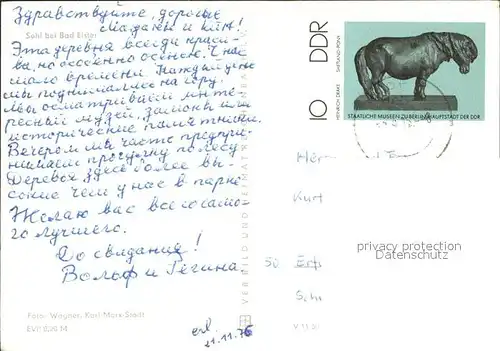 Здравствуйте, дорогие
Магален и Курт!
Sohl bei Bad Elster
Эта деревня всегда краси-
ва, но особенно осенью. У нас
мало времени. Каждый день
мы поднимались на гору.
Мы осматривали инте-
ресный музей, замок и
исторические памятники.
Вечером мы часто предпри-
нимаем прогулку по лесу.
Деревья здесь более вы-
сокие чем у нас в парке
Желаю вас всего само-
го лучшего.
До свидания!
Вольф и Регина
Foto: Wagner, Karl-Marx-Stadt
EVP 0,20 M
erl.
21.11.76
VERLAG BILD UND HEIMAT
10 DDR
HEINRICH DRAKE SHETLAND-PONY
STAATLICHE MUSEEN ZU BERLIN HAUPTSTADT DER DDR
Herrn
Kurt
50 Erf
Sch
privacy protection
Datenschutz